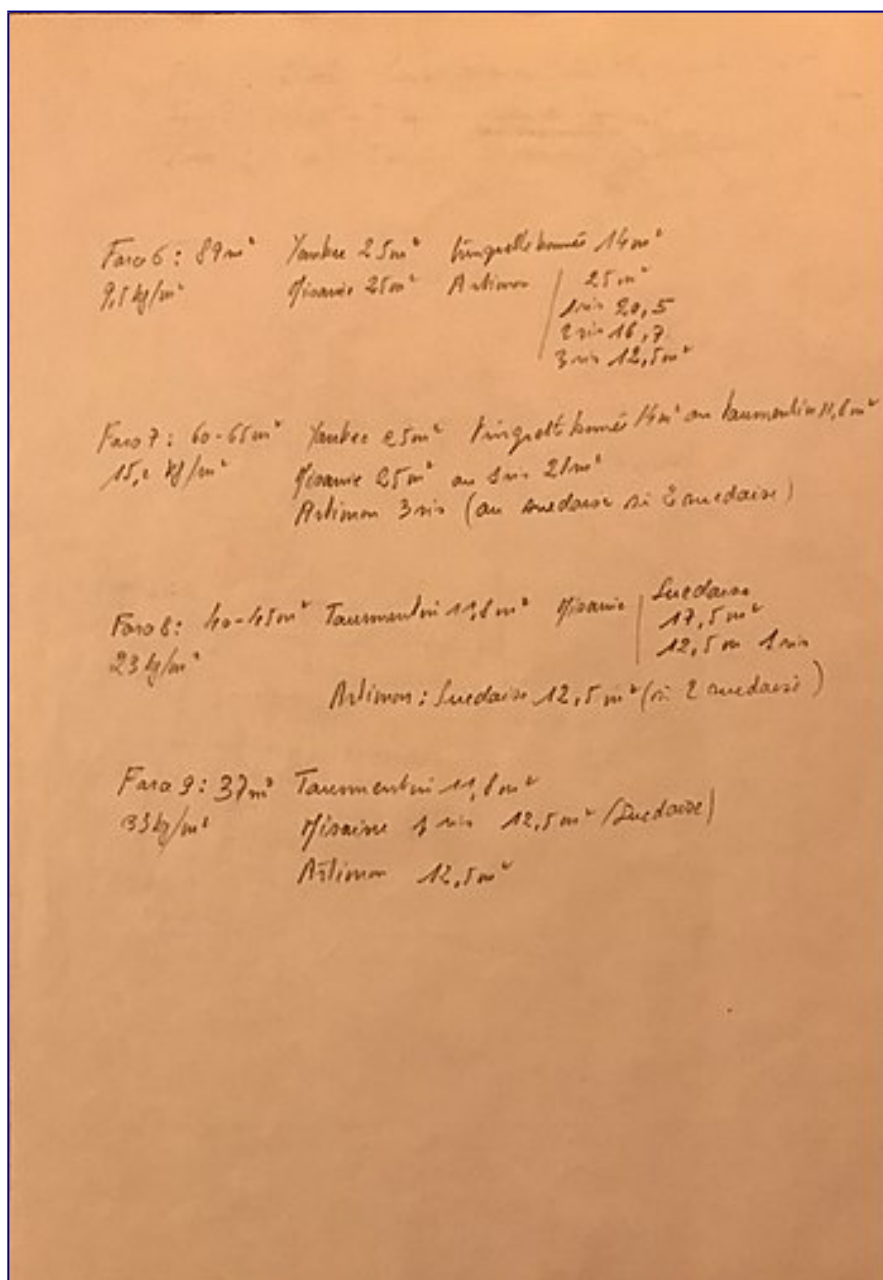 Force 6 : 89 m² Yankee 25 m² trinquette bomée 14 m²
9,5 kg/m² Misaine 25 m² Artimon 25 m²
1 ris 20,5
2 ris 16,7
3 ris 12,5 m²
Force 7 : 60-65 m² Yankee 25 m² trinquette bomée 14 m² ou tourmentin 11,8 m²
15,2 kg/m² Misaine 25 m² ou 1 ris 21 m²
Artimon 3 ris (ou suedoise si 2 suedoise)
Force 8 : 40-45 m² Tourmentin 11,8 m² Misaine Suedoise
23 kg/m² 17,5 m²
12,5 m 1 ris
Artimon : Suedoise 12,5 m² (si 2 suedoise)
Force 9 : 37 m² Tourmentin 11,8 m²
33 kg/m² Misaine 1 ris 12,5 m² (Suedoise)
Artimon 12,5 m²